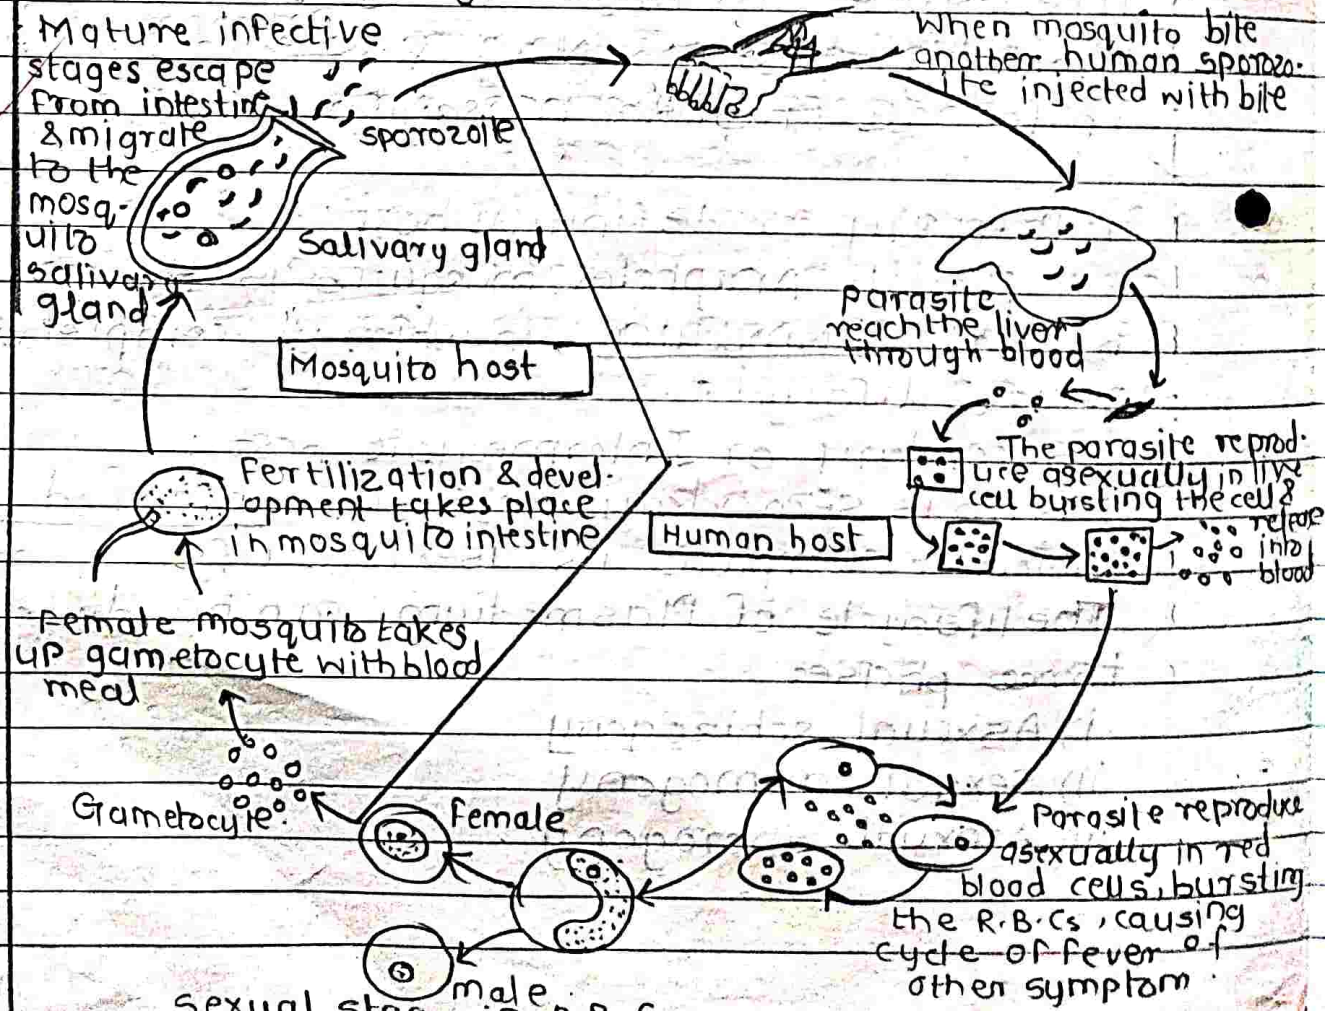 Mature infective
stages escape
from intestine
& migrate
to the
mosq-
uito
salivary
gland
sporozoite
Salivary gland
When mosquito bite
another human sporozo-
ite injected with bite
parasite
reach the liver
through blood
Mosquito host
The parasite reprod-
ure asexually in live
cell bursting the cell &
release
into
blood
Fertilization & devel-
opment takes place
in mosquito intestine
Human host
Female mosquito takes
up gametocyte with blood
meal
Gametocyte.
Female
male
Parasite reproduce
asexually in red
blood cells, bursting
the R.B.Cs, causing
cycle of fever of
other symptom.
sexual